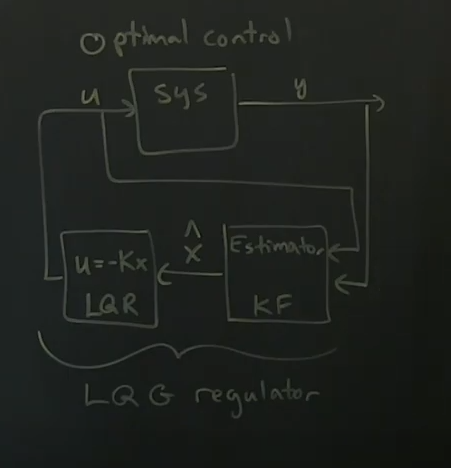 Optimal control
u
Sys
y
u=-Kx
LQR
x̂
Estimator
KF
LQG regulator